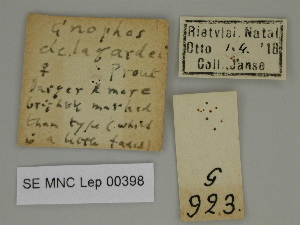 Gnophos
delagardei
♀ Prout
larger & more
brightly marked
than type (which
is a little faded)
Rietvlei. Natal
Otto 1.4. '18
Coll. Janse
SE MNC Lep 00398
G
923.